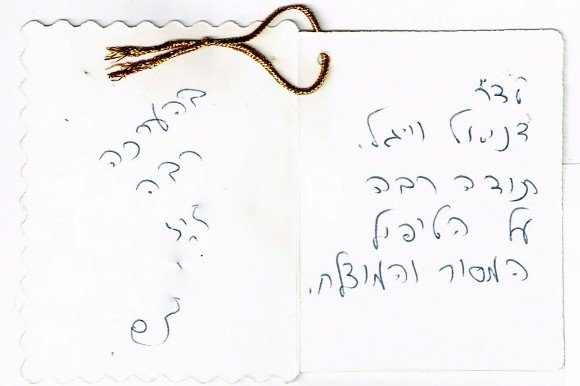 לדר'
דניאל וייגל.
תודה רבה
על הטיפול
המסור והמוצלח.
בהערכה
רבה